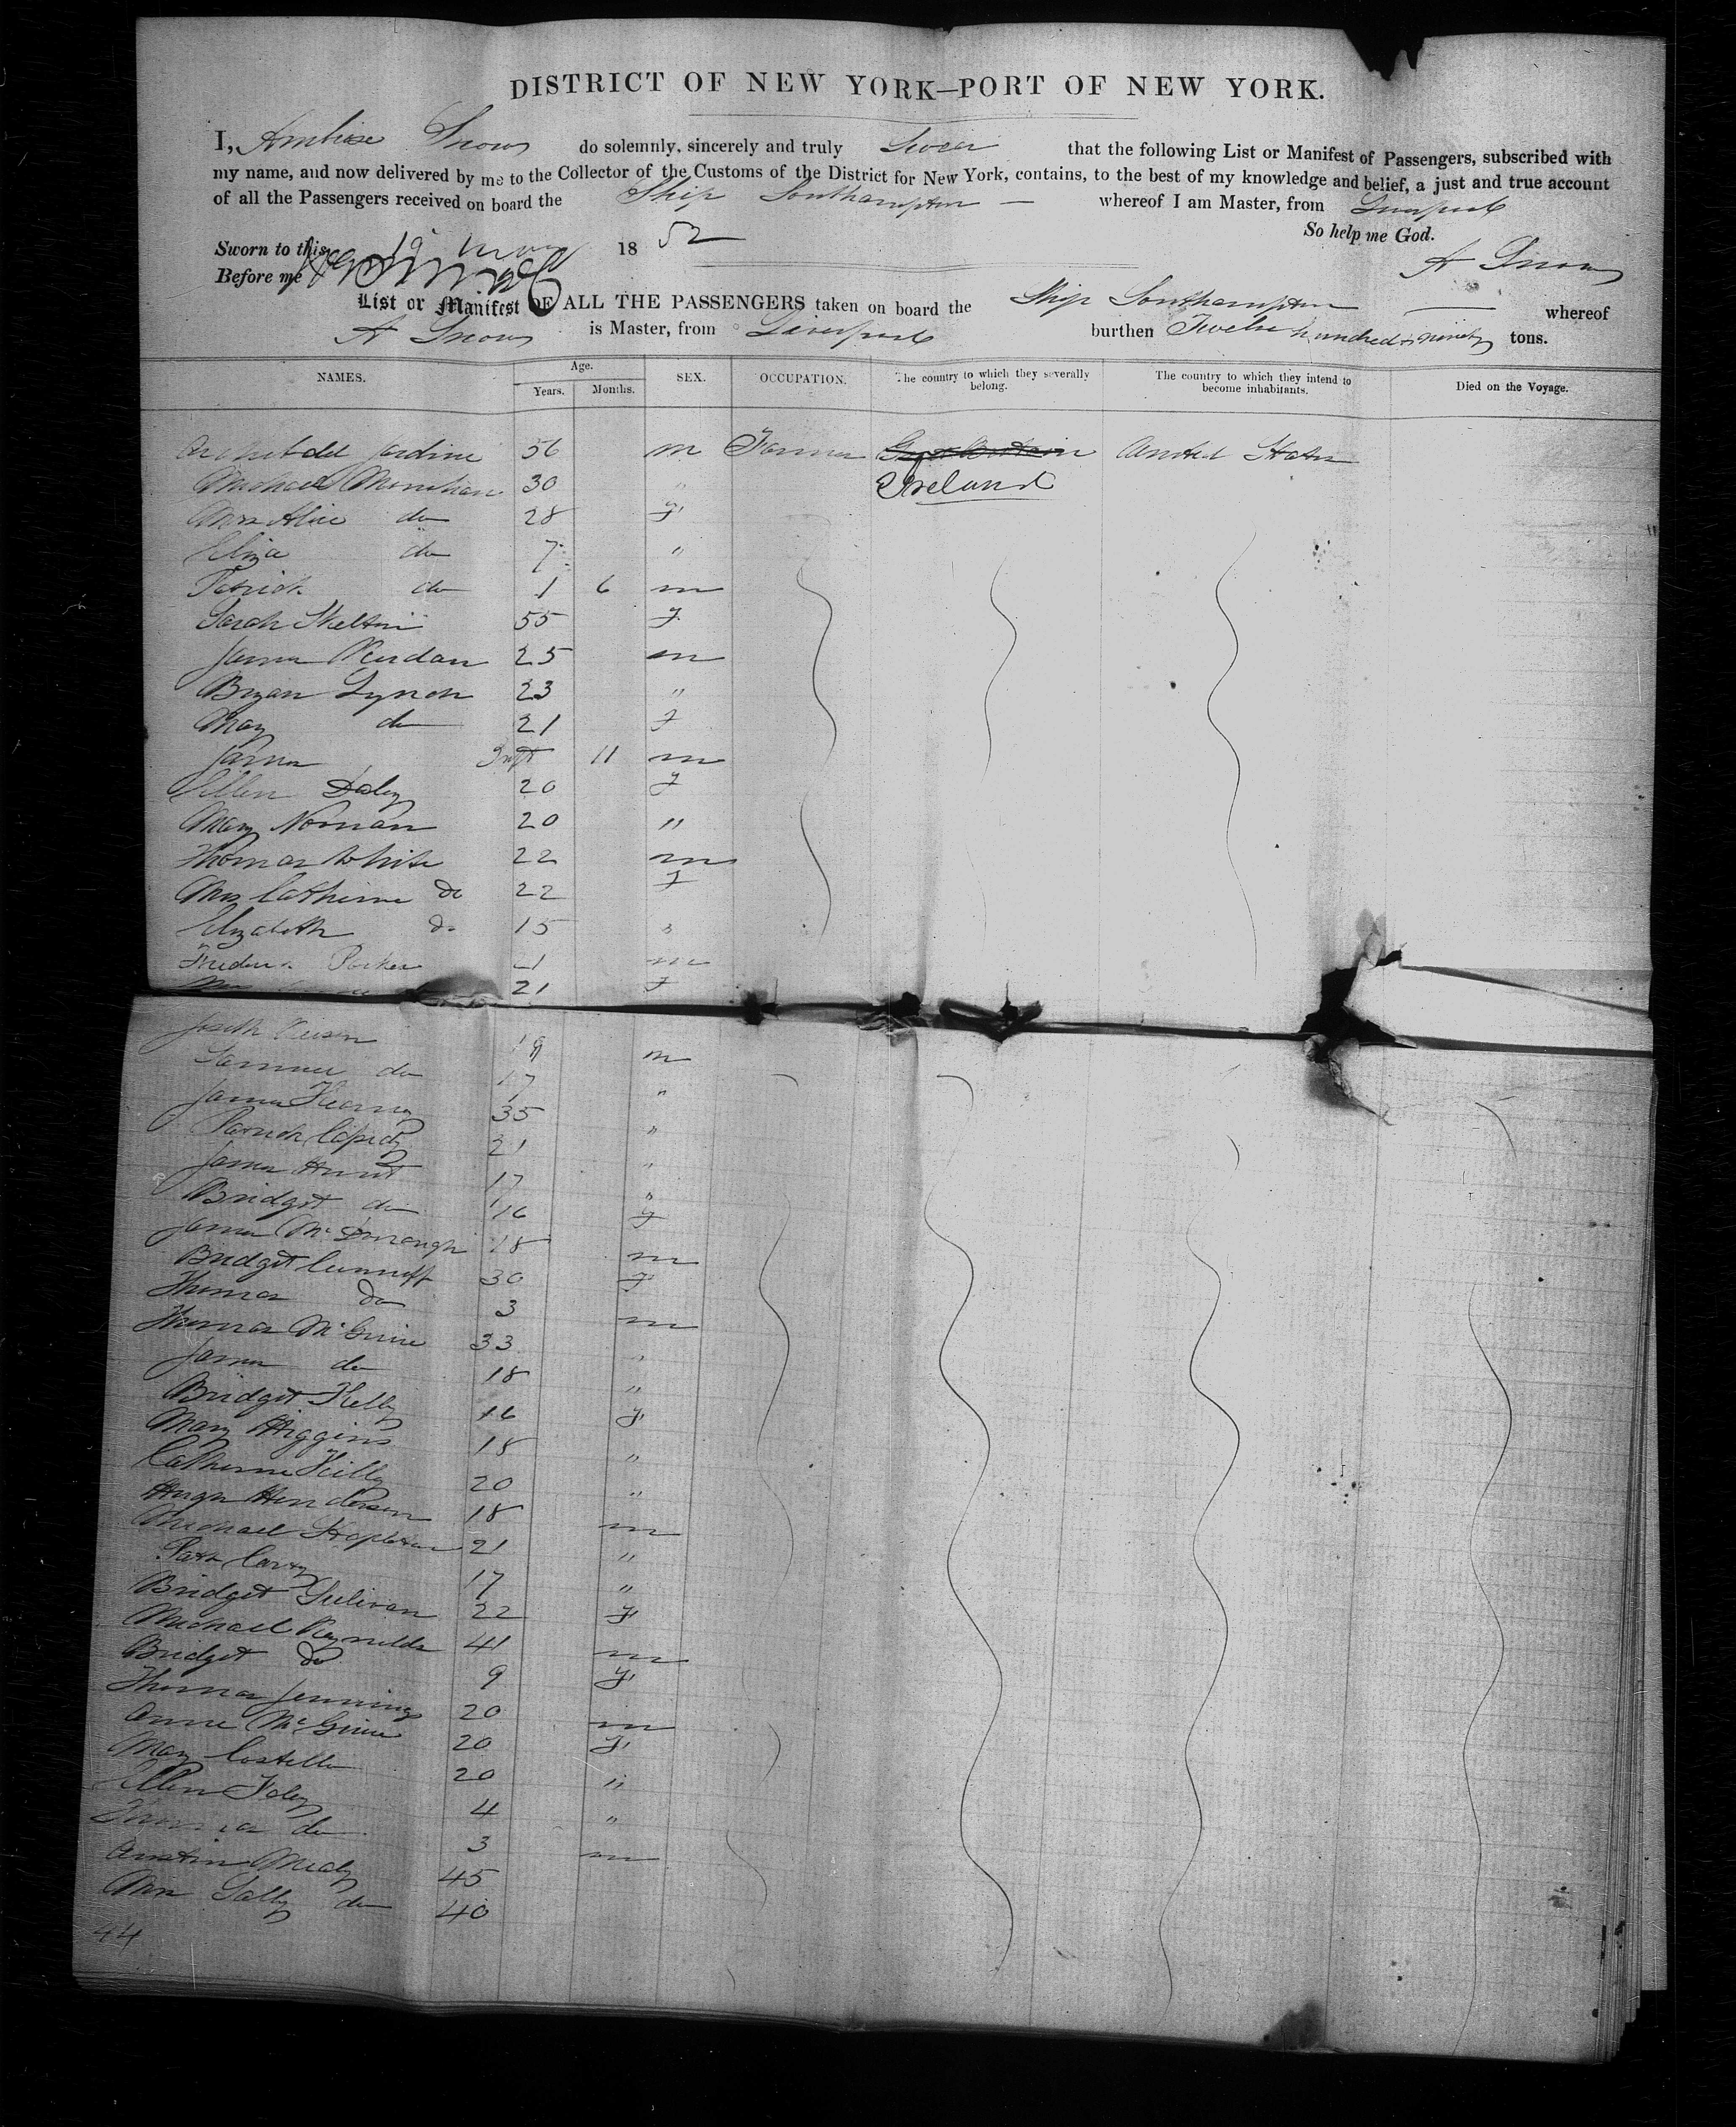 DISTRICT OF NEW YORK—PORT OF NEW YORK.
I, Ambrose Snow do solemnly, sincerely and truly Swear that the following List or Manifest of Passengers, subscribed with
my name, and now delivered by me to the Collector of the Customs of the District for New York, contains, to the best of my knowledge and belief, a just and true account
of all the Passengers received on board the Ship Southampton — whereof I am Master, from Liverpool
So help me God.
Sworn to this 19 1852
Before me
A Snow
List or Manifest OF ALL THE PASSENGERS taken on board the Ship Southampton whereof
A Snow is Master, from Liverpool burthen Twelve hundred & ninety tons.
NAMES. Age. Years. Months. SEX. OCCUPATION. The country to which they severally belong. The country to which they intend to become inhabitants. Died on the Voyage.
Archibald Jardine 56 m Farmer Great Britain United States
Michael 30 " Ireland
Mrs Alice do 28 F
Eliza do 7 "
Patrick do 1 6 m
Sarah Skelton 55 F
James 25 m
Bryan Lynch 23 "
Mary do 21 F
James Inft 11 m
Ellen Daley 20 F
Mary Noonan 20 "
Thomas White 22 m
Mrs Catherine Do 22 F
Elizabeth Do 15 "
Frederick Parker 21 m
Mrs 21 F
Joseph 19 m
Samuel do 17 "
James Kearney 35 "
Patrick 21 "
James Hunt 17 "
Bridget do 16 F
James McDonough 18 m
Bridget Cunniff 30 F
Thomas Do 3 m
Thomas McGuire 33 "
James do 18 "
Bridget Kelly 16 F
Mary Higgins 18 "
Catherine Kelly 20 "
Hugh Henderson 18 m
Michael Stapleton 21 "
Patk Carty 17 "
Bridget Sulivan 22 F
Michael Reynolds 41 m
Bridget Do 9 F
Thomas Jennings 20 m
Anne McGuire 20 F
Mary Costello 20 "
Ellen Foley 4 "
Thomas do 3 m
Austin Mealy 45
Mrs Sally do 40
44